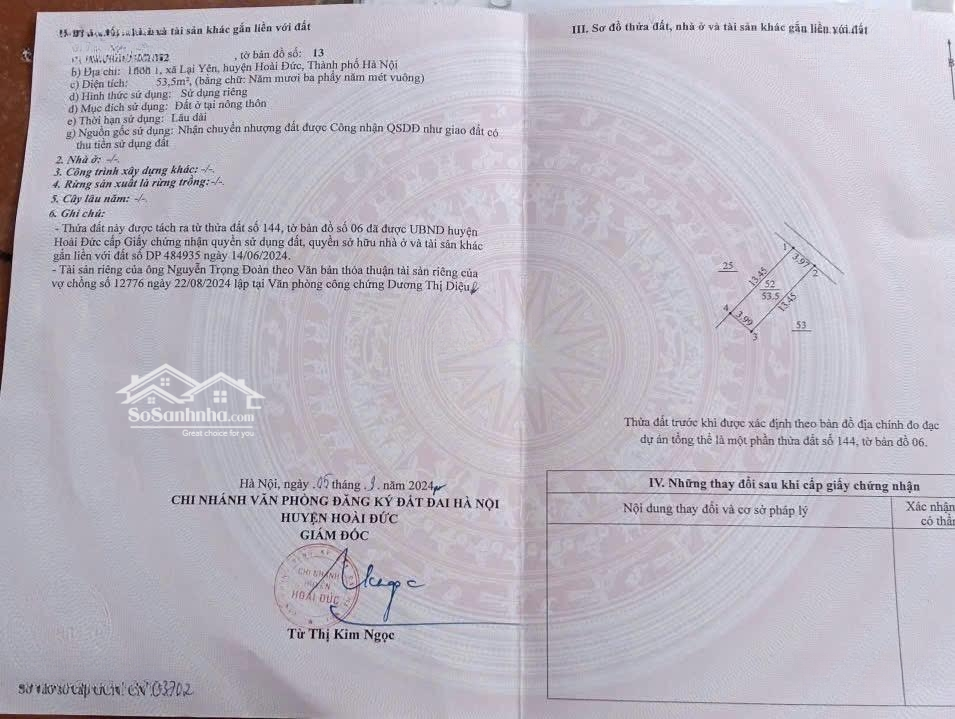 và tài sản khác gắn liền với đất
, tờ bản đồ số: 13
b) Địa chỉ: xã Lại Yên, huyện Hoài Đức, Thành phố Hà Nội
c) Diện tích: 53,5m², (bằng chữ: Năm mươi ba phẩy năm mét vuông)
d) Hình thức sử dụng: Sử dụng riêng
đ) Mục đích sử dụng: Đất ở tại nông thôn
e) Thời hạn sử dụng: Lâu dài
g) Nguồn gốc sử dụng: Nhận chuyển nhượng đất được Công nhận QSDĐ như giao đất có
thu tiền sử dụng đất
2. Nhà ở: -/-.
3. Công trình xây dựng khác: -/-.
4. Rừng sản xuất là rừng trồng: -/-.
5. Cây lâu năm: -/-.
6. Ghi chú:
- Thửa đất này được tách ra từ thửa đất số 144, tờ bản đồ số 06 đã được UBND huyện
Hoài Đức cấp Giấy chứng nhận quyền sử dụng đất, quyền sở hữu nhà ở và tài sản khác
gắn liền với đất số DP 484935 ngày 14/06/2024.
- Tài sản riêng của ông Nguyễn Trọng Đoàn theo Văn bản thỏa thuận tài sản riêng của
vợ chồng số 12776 ngày 22/08/2024 lập tại Văn phòng công chứng Dương Thị Diệu
SoSanhnha.com
Great choice for you
Hà Nội, ngày 05 tháng 9 năm 2024
CHI NHÁNH VĂN PHÒNG ĐĂNG KÝ ĐẤT ĐAI HÀ NỘI
HUYỆN HOÀI ĐỨC
GIÁM ĐỐC
CHI NHÁNH
HUYỆN
HOÀI ĐỨC
Từ Thị Kim Ngọc
Số vào sổ cấp GCN: CN 03702
III. Sơ đồ thửa đất, nhà ở và tài sản khác gắn liền với đất
B
1
3.97
2
25
13.45
52
53.5
13.45
4
3.99
3
53
Thửa đất trước khi được xác định theo bản đồ địa chính đo đạc
dự án tổng thể là một phần thửa đất số 144, tờ bản đồ 06.
IV. Những thay đổi sau khi cấp giấy chứng nhận
Nội dung thay đổi và cơ sở pháp lý
Xác nhận
có thẩm